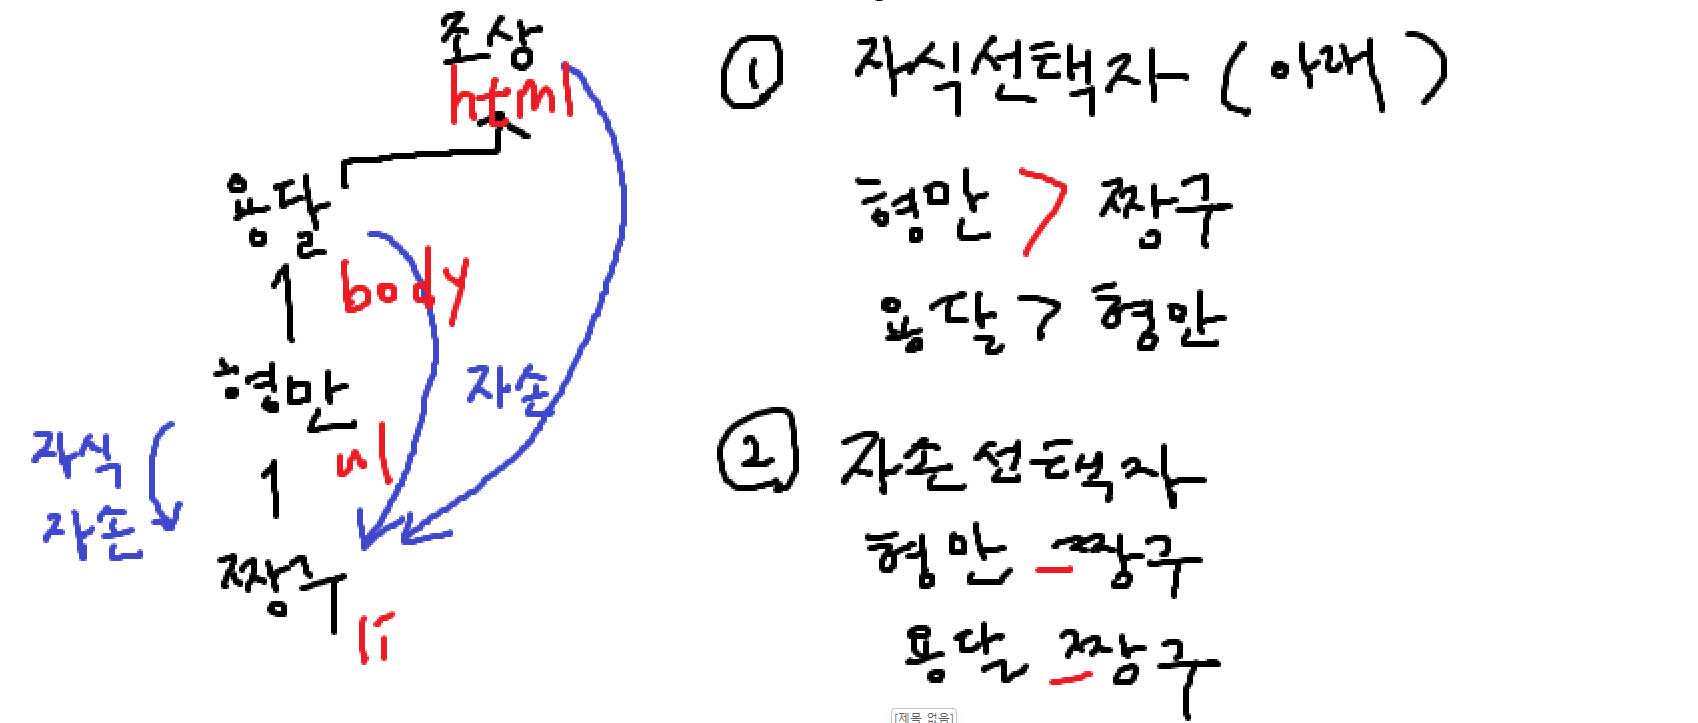 조상
html
용달
body
형만
ul
자식
자손
자손
짱구
li
① 자식선택자 (아래)
형만 > 짱구
용달 > 형만
② 자손선택자
형만 _ 짱구
용달 _ 짱구
[제목 없음]